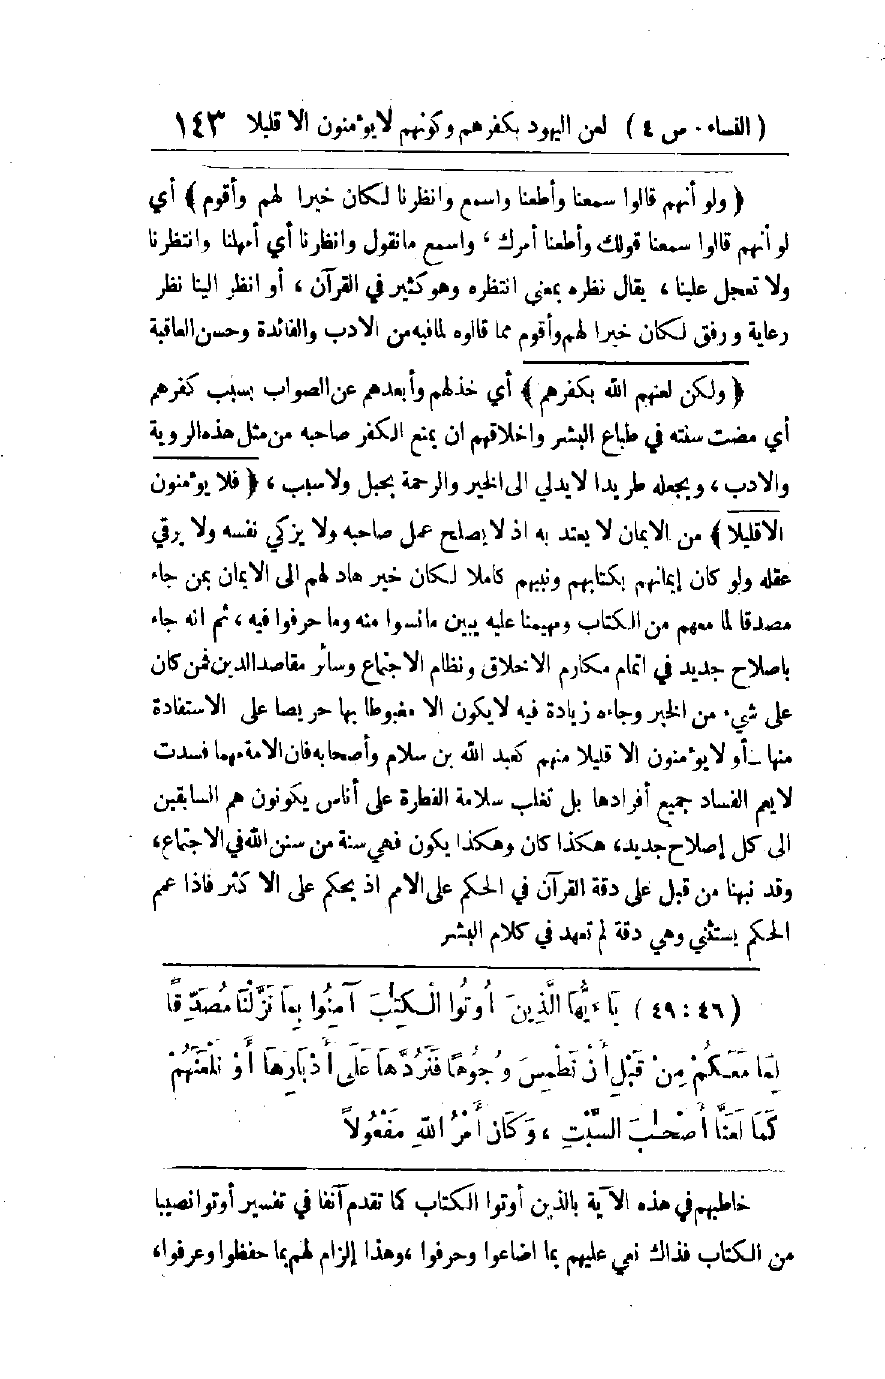 ( النساء ٠ ص ٤ ) لعن اليهود بكفرهم وكونهم لا يؤمنون الا قليلا ١٤٣
﴿ ولو أنهم قالوا سمعنا وأطعنا واسمع وانظرنا لكان خيرا لهم وأقوم ﴾ أي
لو أنهم قالوا سمعنا قولك وأطعنا أمرك ، واسمع ما نقول وانظرنا أي أمهلنا وانتظرنا
ولا تعجل علينا ، يقال نظره بمعنى انتظره وهو كثير في القرآن ، أو انظر الينا نظر
رعاية ورفق لكان خيرا لهم وأقوم مما قالوه لما فيه من الادب والفائدة وحسن العاقبة
﴿ ولكن لعنهم الله بكفرهم ﴾ أي خذلهم وأبعدهم عن الصواب بسبب كفرهم
أي مضت سنته في طباع البشر واخلاقهم ان يمنع الكفر صاحبه من مثل هذه الروية
والادب ، ويجعله طريدا لا يدلي الى الخير والرحمة بحبل ولا سبب ، ﴿ فلا يؤمنون
الا قليلا ﴾ من الايمان لا يعتد به اذ لا يصلح عمل صاحبه ولا يزكي نفسه ولا يرقي
عقله ولو كان إيمانهم بكتابهم ونبيهم كاملا لكان خير هاد لهم الى الايمان بمن جاء
مصدقا لما معهم من الكتاب ومهيمنا عليه يبين ما نسوا منه وما حرفوا فيه ، ثم انه جاء
باصلاح جديد في اتمام مكارم الاخلاق ونظام الاجتماع وسائر مقاصد الدين فمن كان
على شيء من الخير وجاءه زيادة فيه لا يكون الا مغبوطا بها حريصا على الاستفادة
منها ــ أو لا يؤمنون الا قليلا منهم كعبد الله بن سلام وأصحابه فان الامة مهما فسدت
لا يعم الفساد جميع أفرادها بل تغلب سلامة الفطرة على أناس يكونون هم السابقين
الى كل إصلاح جديد، هكذا كان وهكذا يكون فهي سنة من سنن الله في الاجتماع ،
وقد نبهنا من قبل على دقة القرآن في الحكم على الامم اذ يحكم على الاكثر فاذا عمم
الحكم يستثني وهي دقة لم تعهد في كلام البشر
( ٤٦ : ٤٩ ) يَاءَيُّهَا الَّذِينَ أُوتُوا الْكِتٰبَ آمِنُوا بِمَا نَزَّلْنَا مُصَدِّقًا
لِمَا مَعَكُمْ مِنْ قَبْلِ أَنْ نَطْمِسَ وُجُوهًا فَنَرُدَّهَا عَلَى أَدْبَارِهَا أَوْ نَلْعَنَهُمْ
كَمَا لَعَنَّا أَصْحٰبَ السَّبْتِ ، وَكَانَ أَمْرُ اللهِ مَفْعُولاً
خاطبهم في هذه الآية بالذين أوتوا الكتاب كما تقدم آنفا في تفسير أوتوا نصيبا
من الكتاب فذاك نعي عليهم بما اضاعوا وحرفوا ، وهذا إلزام لهم بما حفظوا وعرفوا،